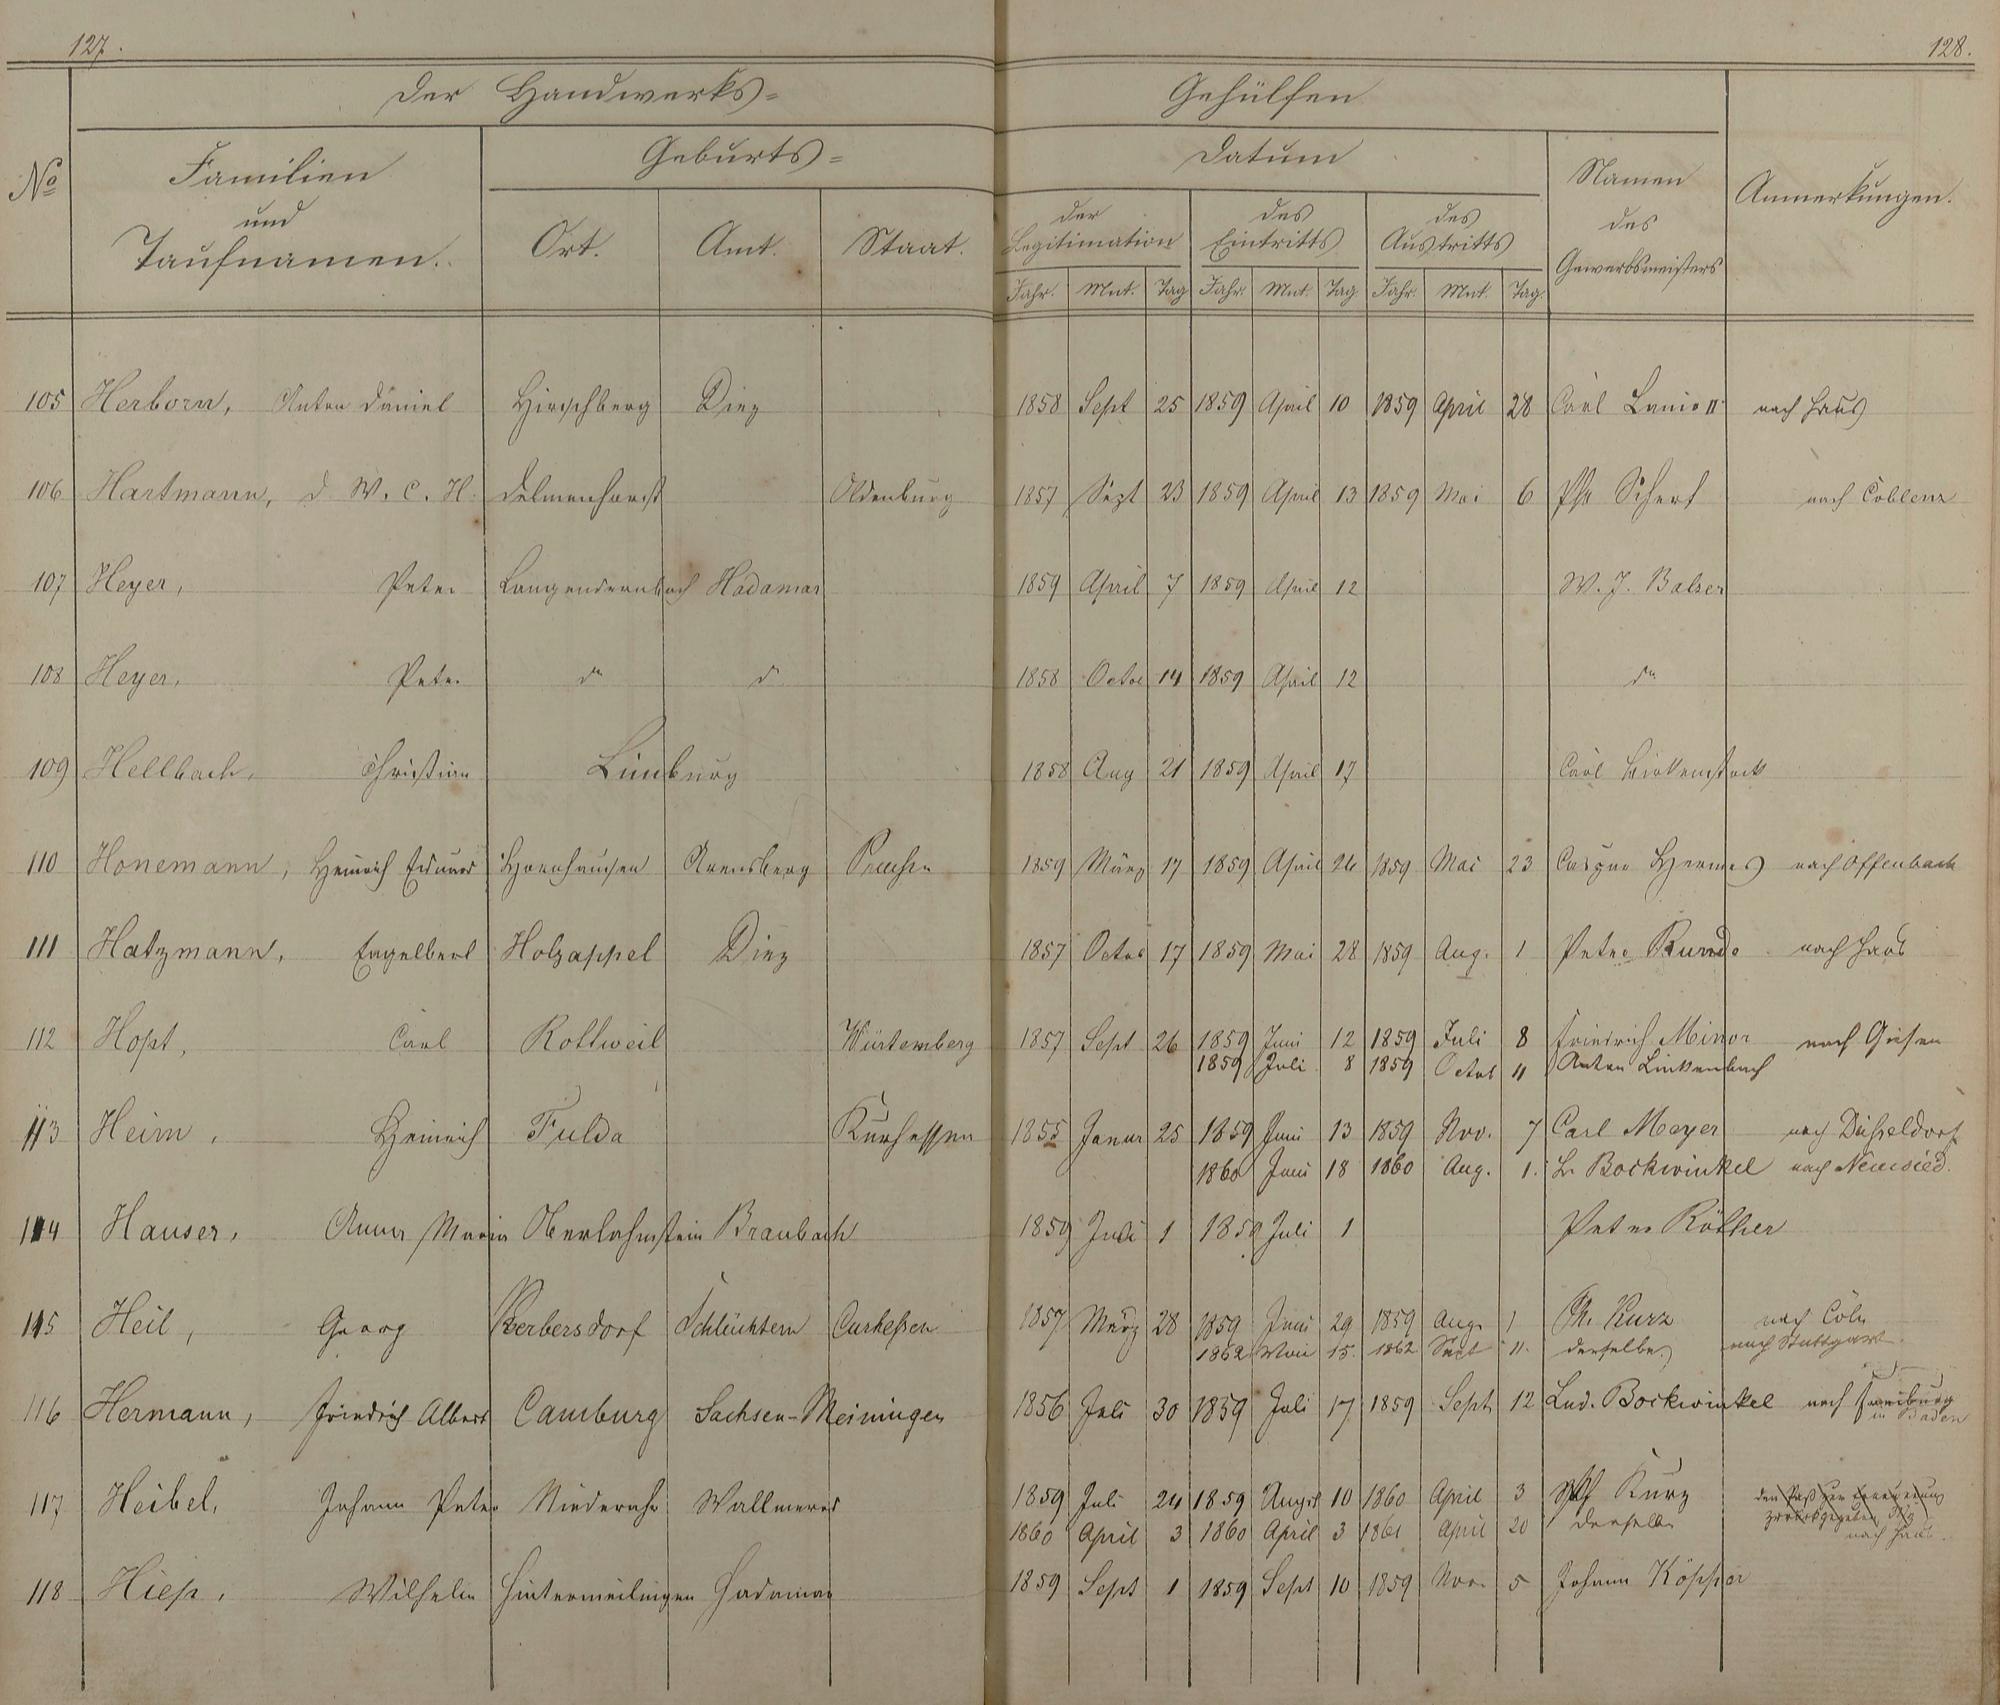 127.
128.
Der Handwerks=
Gehülfen
No
Familien
und
Taufnamen.
Geburts=
Ort.
Amt.
Staat.
Datum
der
Legitimation
des
Eintritts
des
Austritts
Jahr. Mnt. Tag Jahr. Mnt. Tag. Jahr. Mnt. Tag.
Namen
des
Gewerbsmeisters
Anmerkungen.
105 Herborn, Anton Daniel Hirschberg Diez 1858 Sept 25 1859 April 10 1859 April 28 Carl Lanio II nach Haus
106 Hartmann, D. W. C. H. Delmenhorst Oldenburg 1857 Sept 23 1859 April 13 1859 Mai 6 Ph. Scherf nach Coblenz
107 Heyer, Peter Langendernbach Hadamar 1859 April 7 1859 April 12 W. J. Balser
108 Heyer, Peter do d 1858 Octor 14 1859 April 12 do
109 Hellbach, Christian Limburg 1858 Aug 21 1859 April 17 Carl Birkenstock
110 Honemann, Heinrich Eduard Arensberg Preußen 1859 März 17 1859 April 26 1859 Mai 23 Caspar Hermes nach Offenbach
111 Hatzmann, Engelbert Holzappel Diez 1857 Octor 17 1859 Mai 28 1859 Aug. 1 Peter nach Haus
112 Hopt, Carl Rottweil Würtemberg 1857 Sept 26 1859 Juni 12 1859 Juli 8 Friedrich Minor nach Giesen
1859 Juli 8 1859 Octob 11 Anton Linkenbach
113 Heim, Heinrich Fulda Kurhessen 1855 Januar 25 1859 Juni 13 1859 Nov. 7 Carl Meyer nach Düsseldorf
1860 Juni 18 1860 Aug. 1. L. Bockwinkel nach Neuwied.
114 Hauser, Anna Maria Oberlahnstein Braubach 1859 Juli 1 1859 Juli 1 Peter Röther
115 Heil, Georg Herbersdorf Schlüchtern Curhessen 1857 März 28 1859 Juni 29 1859 Aug. 1 Ph. Kurz nach Cöln
1862 Mai 15. 1862 Sept 11. derselbe nach Stuttgart.
116 Hermann, Friedrich Albert Camburg Sachsen-Meiningen 1856 Juli 30 1859 Juli 17 1859 Sept 12 Lud. Bockwinkel nach Freiburg
in Baden
117 Heibel, Johann Peter Niederahr Wallmerod 1859 Juli 24 1859 August 10 1860 April 3 Kurz den Paß zur Erneuerung
zurückgegeben
1860 April 3 1860 April 3 1861 April 20 derselbe nach Haus.
118 Hiep, Wilhelm Hintermeilingen Hadamar 1859 Sept 1 1859 Sept 10 1859 Nov. 5 Johann Köpper